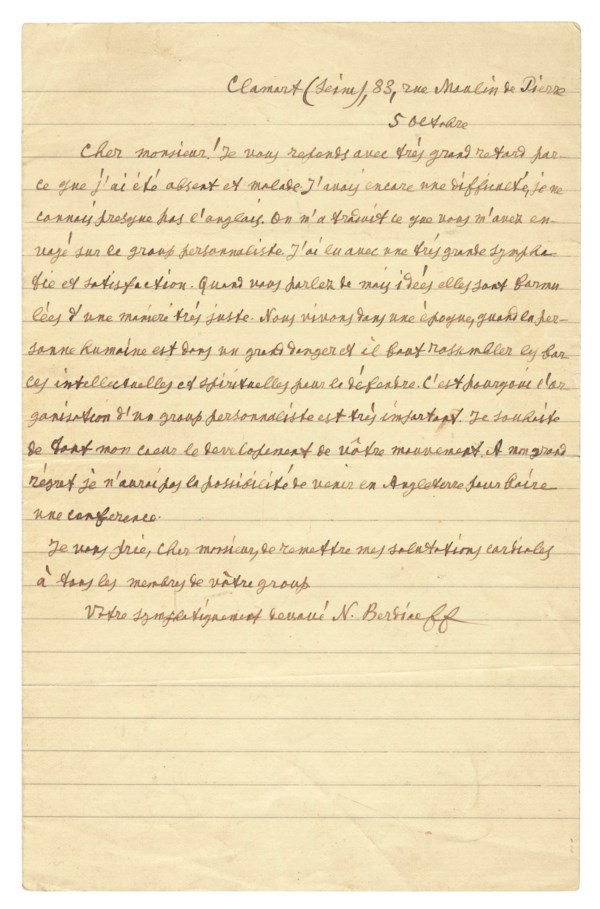 Clamart (Seine), 83, rue Moulin de Pierre
5 Octobre
Cher monsieur! Je vous reponds avec trés grand retard par-
ce que j'ai été absent et malade. J'avais encore une difficulté, je ne
connais presque pas l'anglais. On m'a traduit ce que vous m'avez en-
voyé sur le group personnaliste. J'ai lu avec une trés grande sympha-
tie et satisfaction. Quand vous parlez de mais idées elles sont formu-
lées d'une manierè trés juste. Nous vivons dans une époque, quand la per-
sonne humaine est dans un grand danger et il faut rassembler les for-
ces intellectuelles et spirituelles pour le défendre. C'est pourquoi l'or-
ganisation d'un group personnaliste est trés important. Je souhaite
de tout mon coeur le developement de vôtre mouvement. A mon grand
régret je n'aurai pas la possibilité de venir en Angleterre pour faire
une conference.
Je vous prie, cher monsieur, de remettre mes salutations cordiales
à tous les membres de vôtre group.
Vôtre symphatiquement devoué N. Berdiaeff